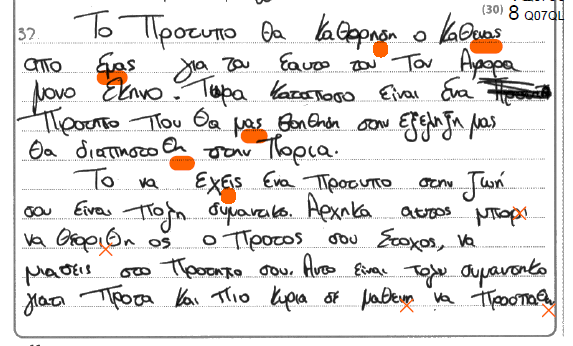 (30)
8 Q07QL
32 Το Προτυπο θα καθορηση ο καθενας
απο εμας για τον εαυτο του Τον Αφορα
μονο εκηνο. Τωρα καταποσο ειναι ένα
Προτηπο που θα μας βοηθηση στην εξεληξη μας
θα διαπηστοθη στην Πορια.
Το να εχεις ένα προτυπο στην ζωή
σου είναι πολη συμαντικο. Αρχηκα αυτος μπορι
να θεοριθη ος ο Πρωτος σου Στοχος, να
μιασεις στο Προτηπο σου. Αυτο είναι πολυ συμαντικο
γιατι Πρωτα και πιο κυρια σε μαθενη να Προσπαθεις